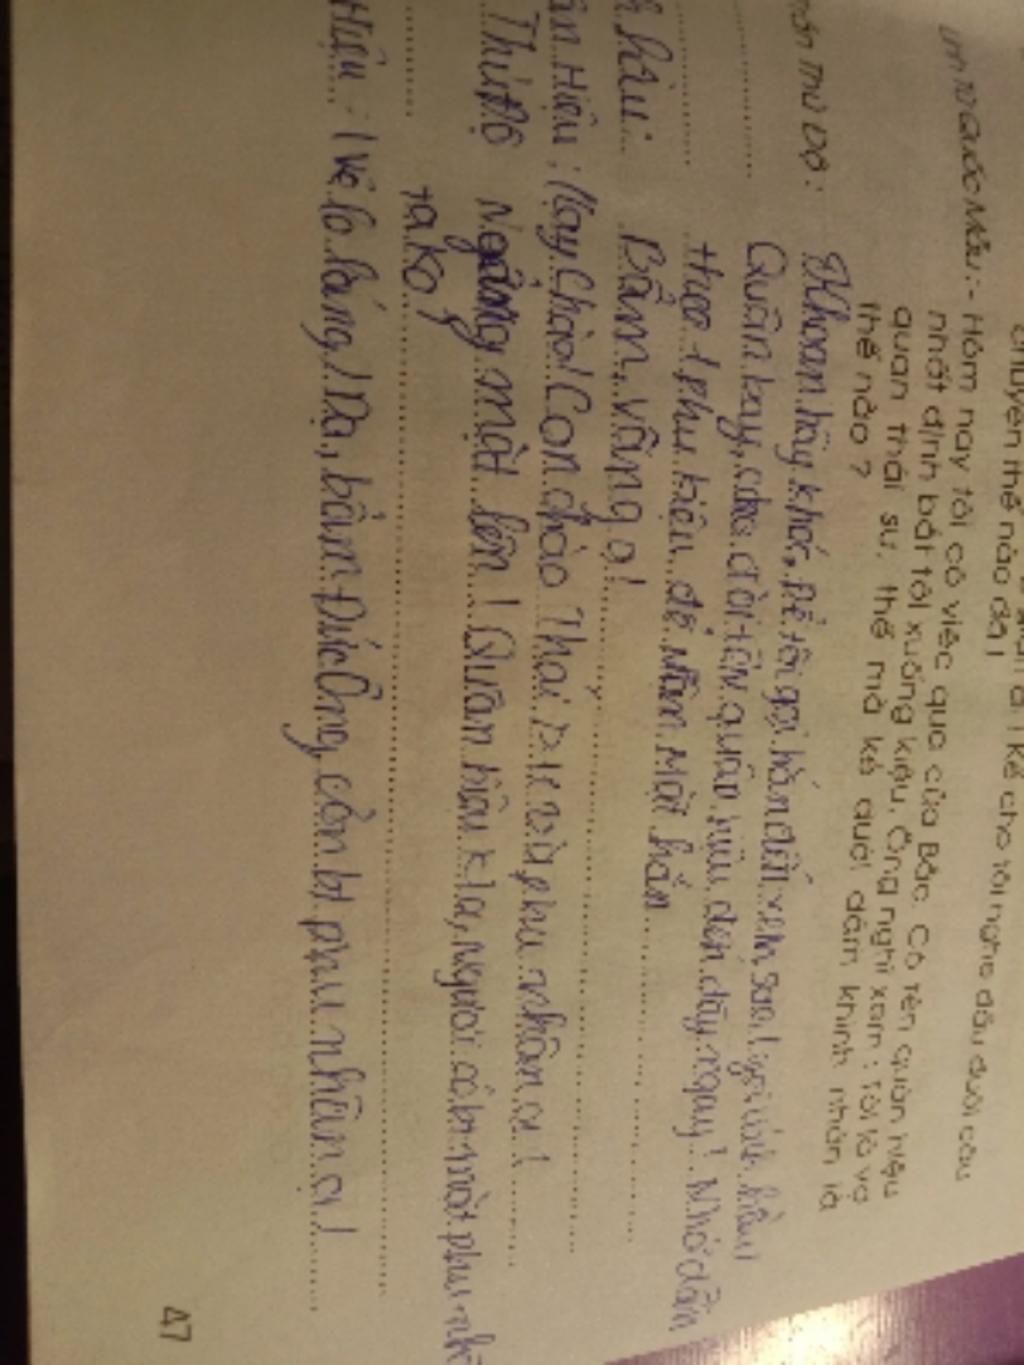 chuyện thế nào ạ! kể cho tôi nghe đầu đuôi câu
Linh Từ Quốc Mẫu :- Hôm nay tôi có việc qua cửa Bắc. Có tên quân hiệu
nhất định bắt tôi xuống kiệu. Ông nghĩ xem : Tôi là vợ
quan thái sư, thế mà kẻ dưới dám khinh nhờn là
thế nào ?
Trần Thủ Độ : Khoan hãy khóc, để tôi gọi hắn đến xem sao! gọi lính hầu!
Quân bay, cho đòi tên quân hiệu đến đây ngay! Nhớ dẫn
theo 1 phu kiệu để nhằm mặt hắn
h hầu: Bẩm, vâng ạ!
ân Hiệu : (Này Chào) Con chào Thái sư và phu nhân ạ!
Thủ Độ Ngẩng mặt lên! Quân hiệu kia, ngươi có bi mặt phu nh
ta ko?
Hiệu : (Vẻ lo lắng) Dạ, bẩm Đức Ông, con bt phu nhân ạ!
47